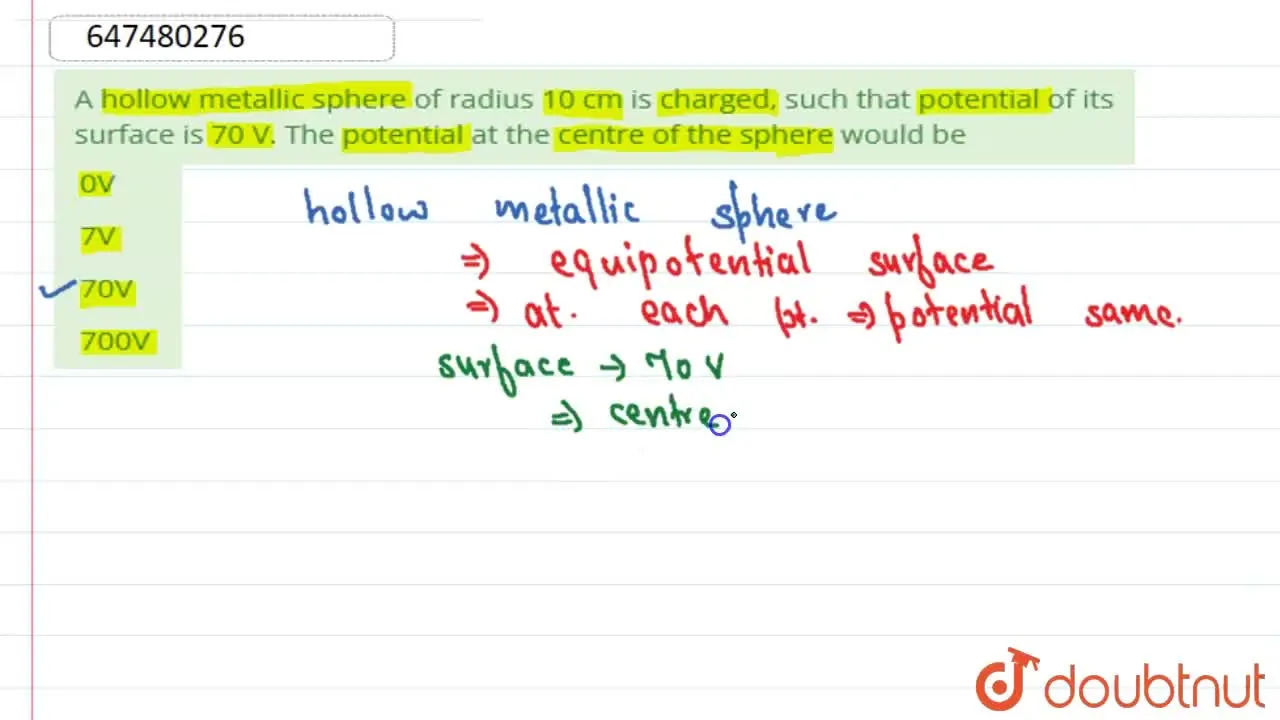 647480276
A hollow metallic sphere of radius 10 cm is charged, such that potential of its
surface is 70 V. The potential at the centre of the sphere would be
0V
7V
70V
700V
hollow metallic sphere
⇒ equipotential surface
⇒ at. each pt. ⇒ potential same.
surface → 70 V
⇒ centre
doubtnut